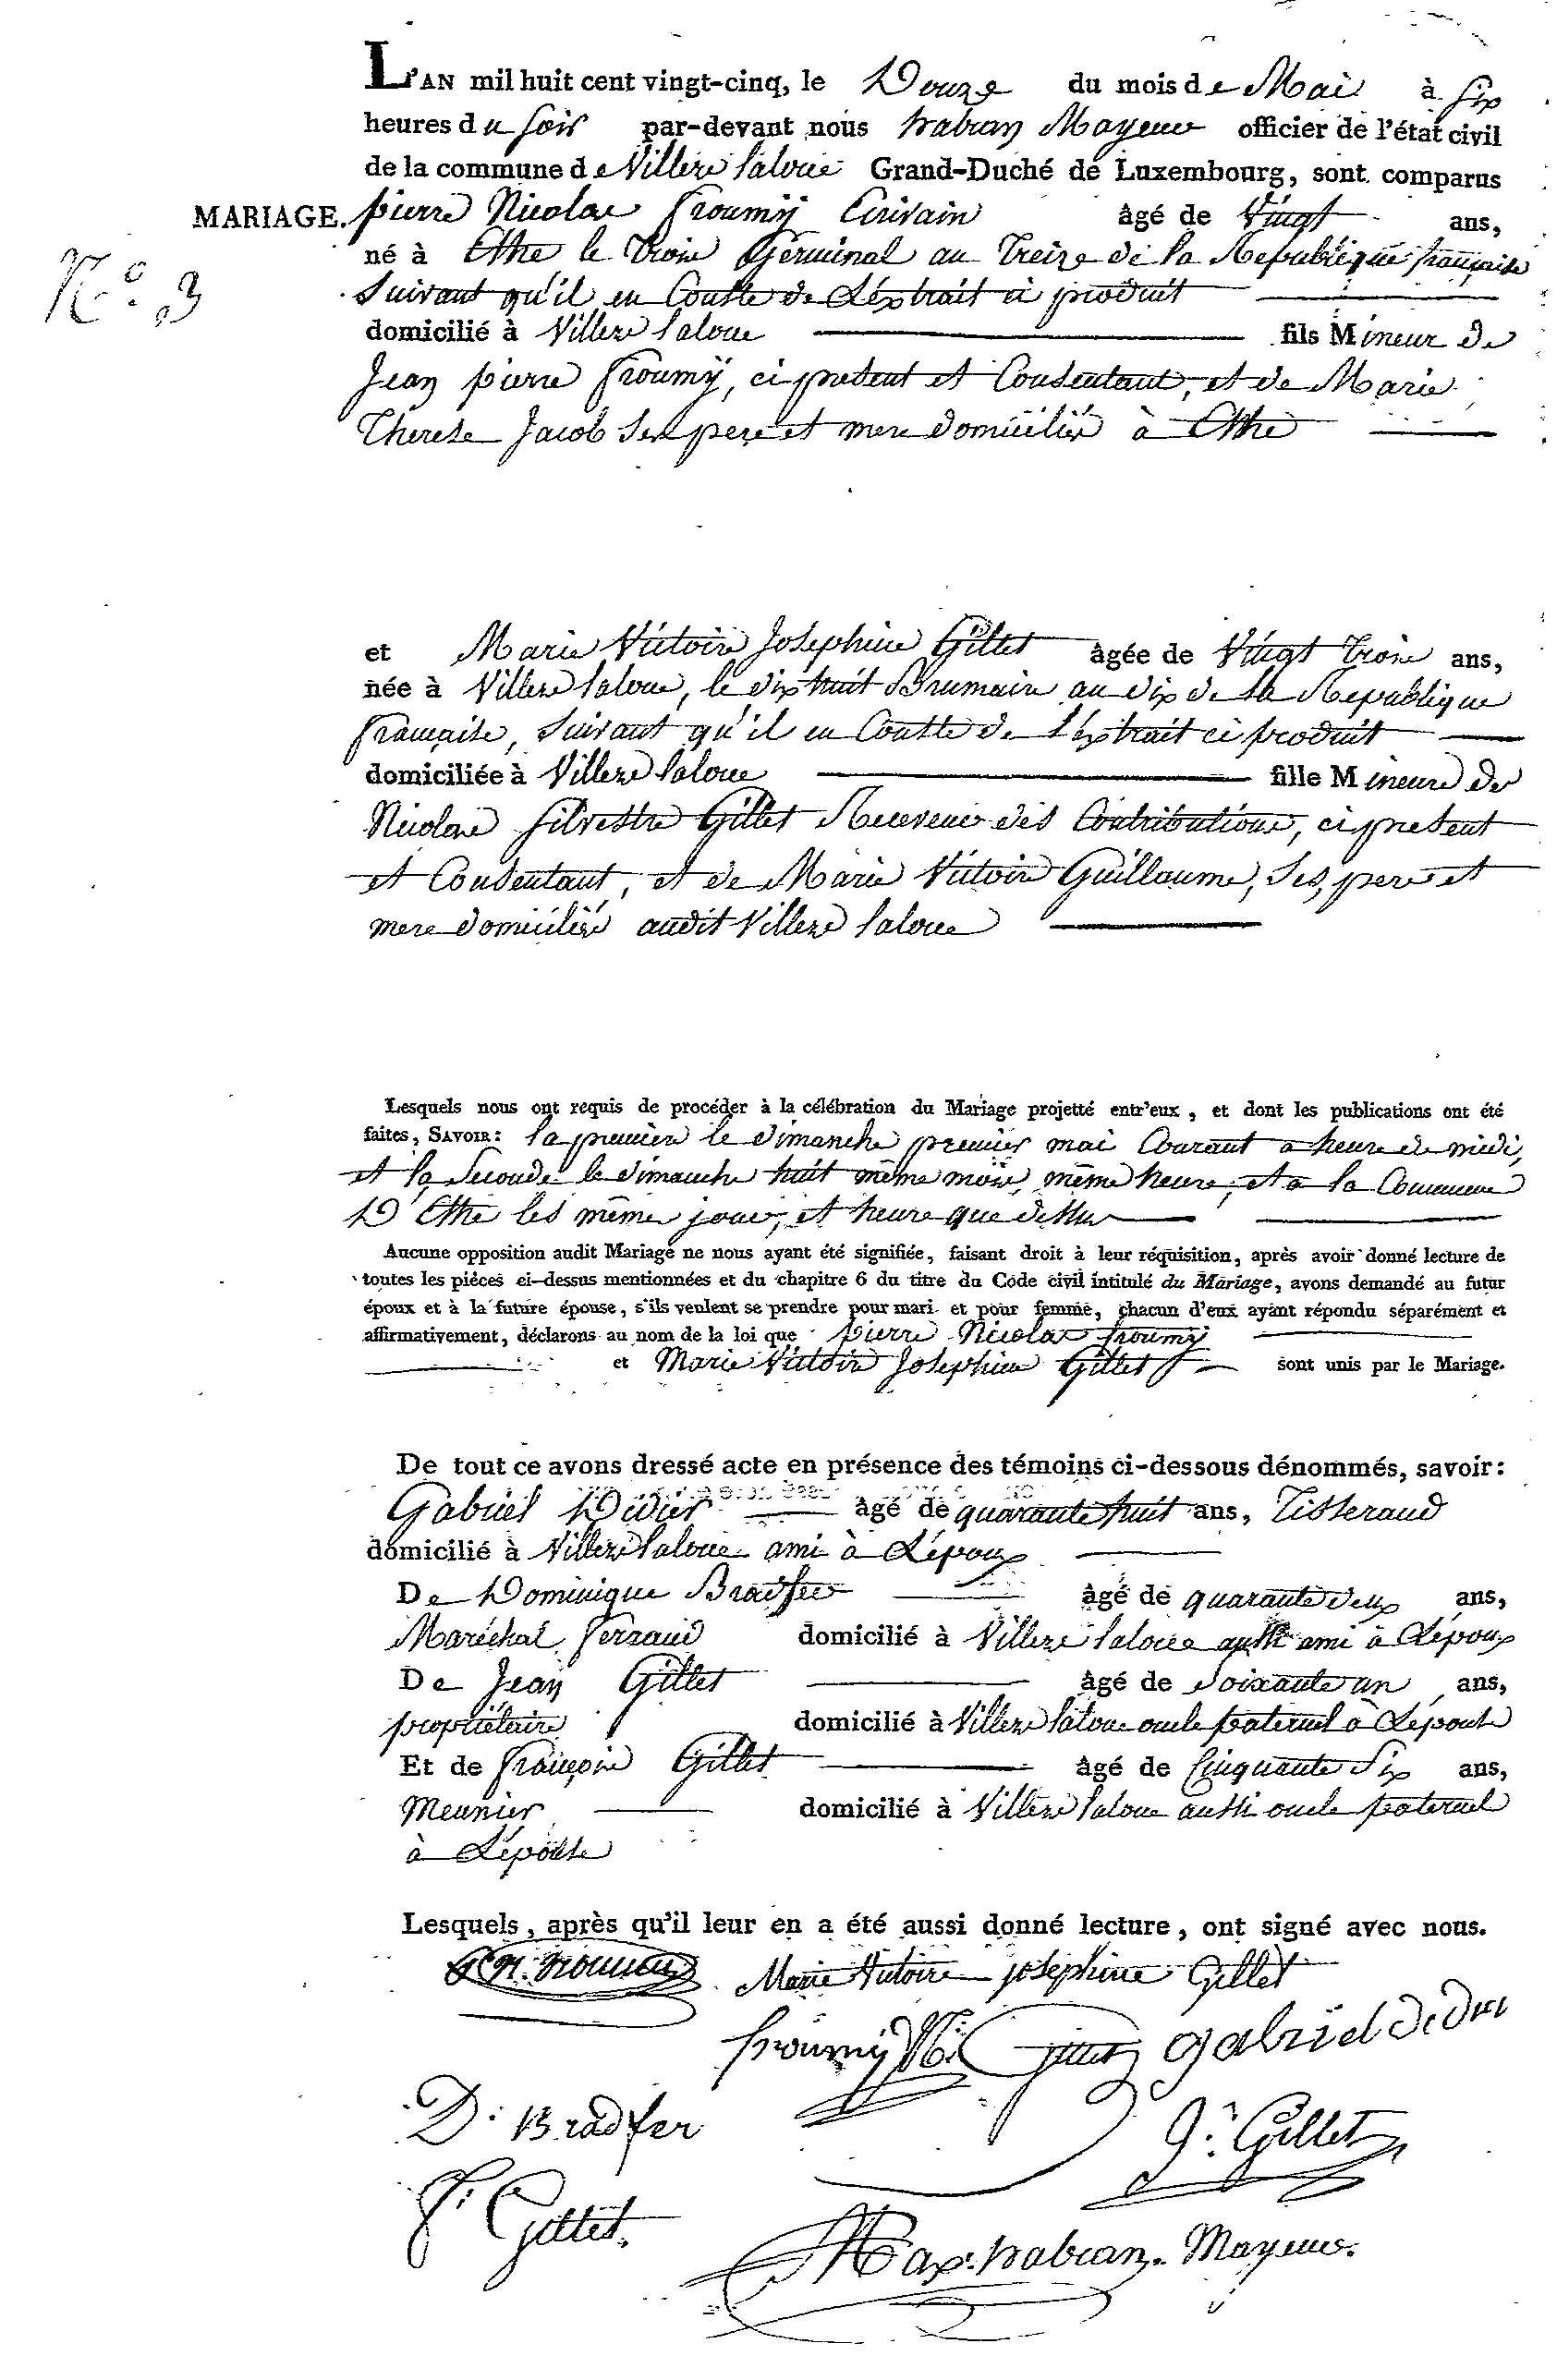 L'AN mil huit cent vingt-cinq, le Douze du mois de Mai à six
heures du soir par-devant nous habran Mayeur officier de l'état civil
de la commune de Villers laloue Grand-Duché de Luxembourg, sont comparus
MARIAGE. pierre Nicolas froumÿ Ecrivain âgé de Vingt ans,
N.° 3
né à Ethe le Trois Germinal an Treize de la Republique française
Suivant qu'il en Conste de L'extrait ci produit
domicilié à Villers laloue fils Mineur de
Jean pierre froumÿ, ci present et Consentant, et de Marie
Therese Jacob ses pere et mere domiciliés à Ethe
et Marie Victoire Josephine Gillet âgée de Vingt Trois ans,
née à Villers laloue, le dix huit Brumaire an dix de la Republique
française, suivant qu'il en Conste de l'extrait ci produit
domiciliée à Villers laloue fille Mineure de
Nicolas Silvestre Gillet Receveur des Contributions, ci present
et Consentant, et de Marie Victoire Guillaume, ses pere et
mere domiciliés audit Villers laloue
Lesquels nous ont requis de procéder à la célébration du Mariage projetté entr'eux, et dont les publications ont été
faites, SAVOIR: la premiere le dimanche premier mai Courant a heure de midi,
et la Seconde le dimanche huit même mois, même heure, et a la Commune
D'Ethe les même jour, et heure que dessus
Aucune opposition audit Mariage ne nous ayant été signifiée, faisant droit à leur réquisition, après avoir donné lecture de
toutes les pièces ci-dessus mentionnées et du chapitre 6 du titre du Code civil intitulé du Mariage, avons demandé au futur
époux et à la future épouse, s'ils veulent se prendre pour mari et pour femme, chacun d'eux ayant répondu séparément et
affirmativement, déclarons au nom de la loi que pierre Nicolas froumÿ
et Marie Victoire Josephine Gillet sont unis par le Mariage.
De tout ce avons dressé acte en présence des témoins ci-dessous dénommés, savoir:
Gabriel Didier âgé de quarante huit ans, Tisserand
domicilié à Villers laloue ami à L'époux
De Dominique Bradfer âgé de quarante deux ans,
Maréchal ferrand domicilié à Villers laloue aussi ami à L'époux
De Jean Gillet âgé de Soixante un ans,
propriétaire domicilié à Villers laloue oncle paternel à L'épouse
Et de françois Gillet âgé de Cinquante Six ans,
Meunier domicilié à Villers laloue aussi oncle paternel
à L'épouse
Lesquels, après qu'il leur en a été aussi donné lecture, ont signé avec nous.
Marie Victoire josephine Gillet
froumÿ N. Gillet gabriel didier
D. Bradfer
J. Gillet
f. Gillet.
Max. habran. Mayeur.